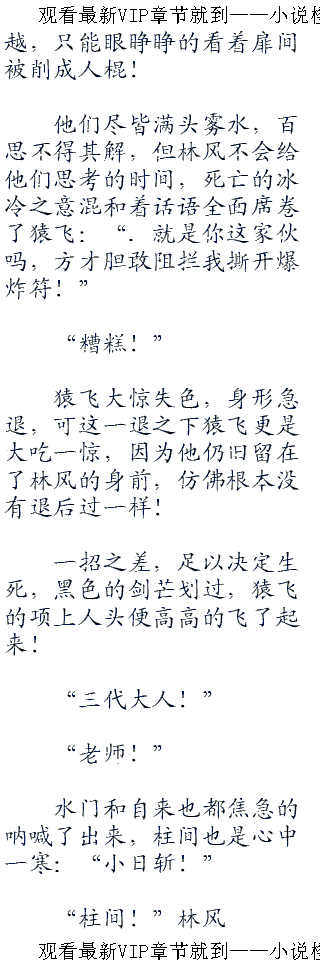 观看最新VIP章节就到——小说
越，只能眼睁睁的看着扉间
被削成人棍！
他们尽皆满头雾水，百
思不得其解，但林风不会给
他们思考的时间，死亡的冰
冷之意混和着话语全面席卷
了猿飞：“．就是你这家伙
吗，方才胆敢阻拦我撕开爆
炸符！”
“糟糕！”
猿飞大惊失色，身形急
退，可这一退之下猿飞更是
大吃一惊，因为他仍旧留在
了林风的身前，仿佛根本没
有退后过一样！
一招之差，足以决定生
死，黑色的剑芒划过，猿飞
的项上人头便高高的飞了起
来！
“三代大人！”
“老师！”
水门和自来也都焦急的
呐喊了出来，柱间也是心中
一寒：“小日斩！”
“柱间！”林风
观看最新VIP章节就到——小说